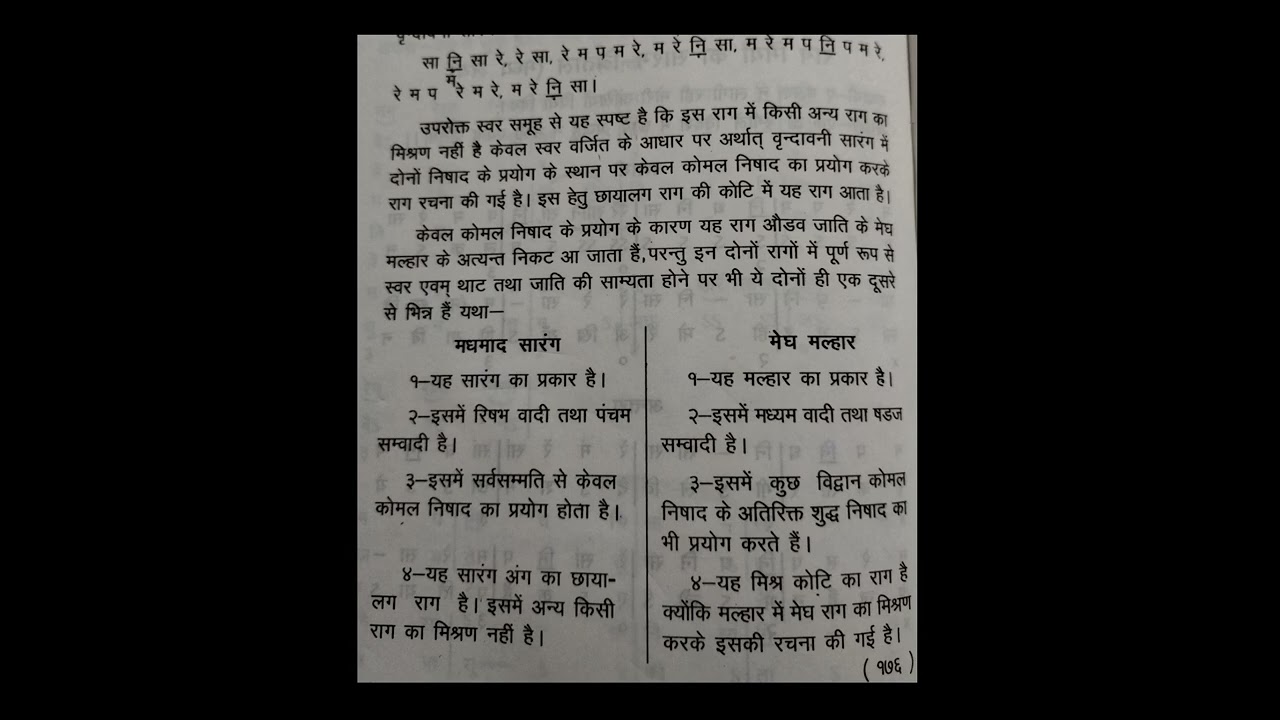 सा नि सा रे, रे सा, रे म प म रे, म रे नि सा, म रे म प नि प म रे,
रे म प मरे म रे, म रे नि सा।
उपरोक्त स्वर समूह से यह स्पष्ट है कि इस राग में किसी अन्य राग का
मिश्रण नहीं है केवल स्वर वर्जित के आधार पर अर्थात् वृन्दावनी सारंग में
दोनों निषाद के प्रयोग के स्थान पर केवल कोमल निषाद का प्रयोग करके
राग रचना की गई है। इस हेतु छायालग राग की कोटि में यह राग आता है।
केवल कोमल निषाद के प्रयोग के कारण यह राग औडव जाति के मेघ
मल्हार के अत्यन्त निकट आ जाता हैं, परन्तु इन दोनों रागों में पूर्ण रूप से
स्वर एवम् थाट तथा जाति की साम्यता होने पर भी ये दोनों ही एक दूसरे
से भिन्न हैं यथा—
मधमाद सारंग
१—यह सारंग का प्रकार है।
२—इसमें रिषभ वादी तथा पंचम
सम्वादी है।
३—इसमें सर्वसम्मति से केवल
कोमल निषाद का प्रयोग होता है।
४—यह सारंग अंग का छाया-
लग राग है। इसमें अन्य किसी
राग का मिश्रण नहीं है।
मेघ मल्हार
१—यह मल्हार का प्रकार है।
२—इसमें मध्यम वादी तथा षडज
सम्वादी है।
३—इसमें कुछ विद्वान कोमल
निषाद के अतिरिक्त शुद्ध निषाद का
भी प्रयोग करते हैं।
४—यह मिश्र कोटि का राग है
क्योंकि मल्हार में मेघ राग का मिश्रण
करके इसकी रचना की गई है।
( १७६ )